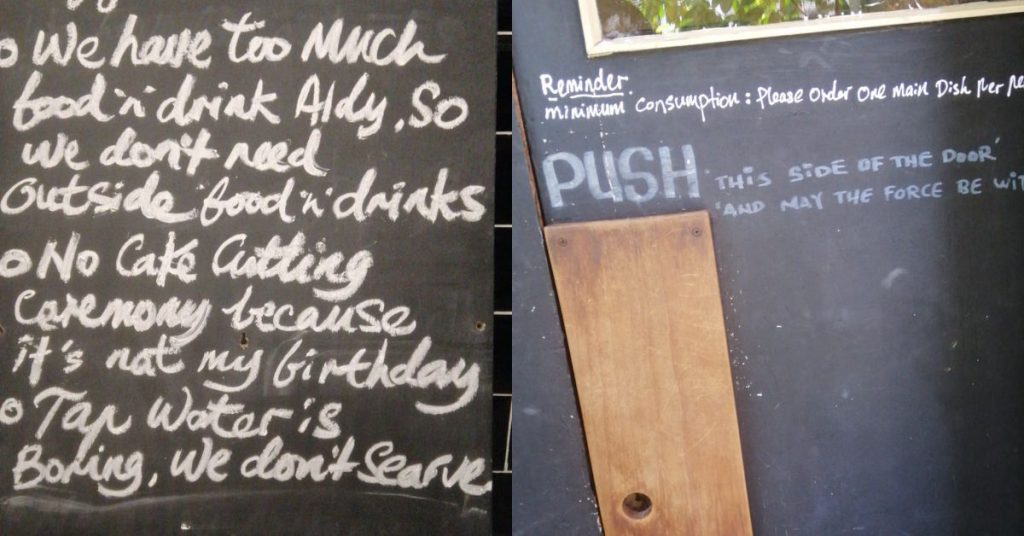 We have too Much
food 'n' drink Aldy, So
We don't need
Outside food 'n' drinks
No Cake Cutting
Ceremony because
it's not my birthday
Tap Water is
Boring, We don't Searve
Reminder
Minimum Consumption: Please Order One Main Dish Per
PUSH 'THIS SIDE OF THE DOOR'
'AND MAY THE FORCE BE